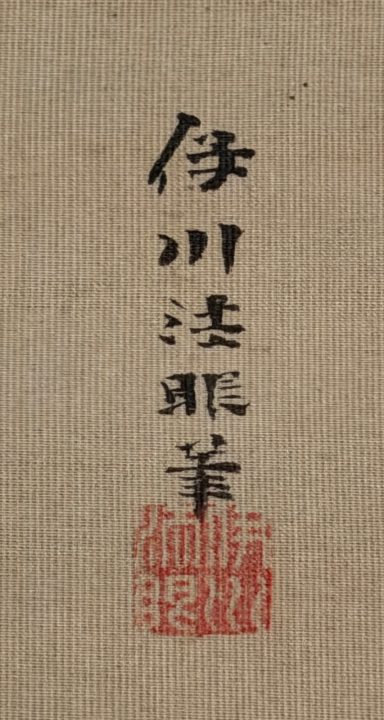 伊川法眼筆